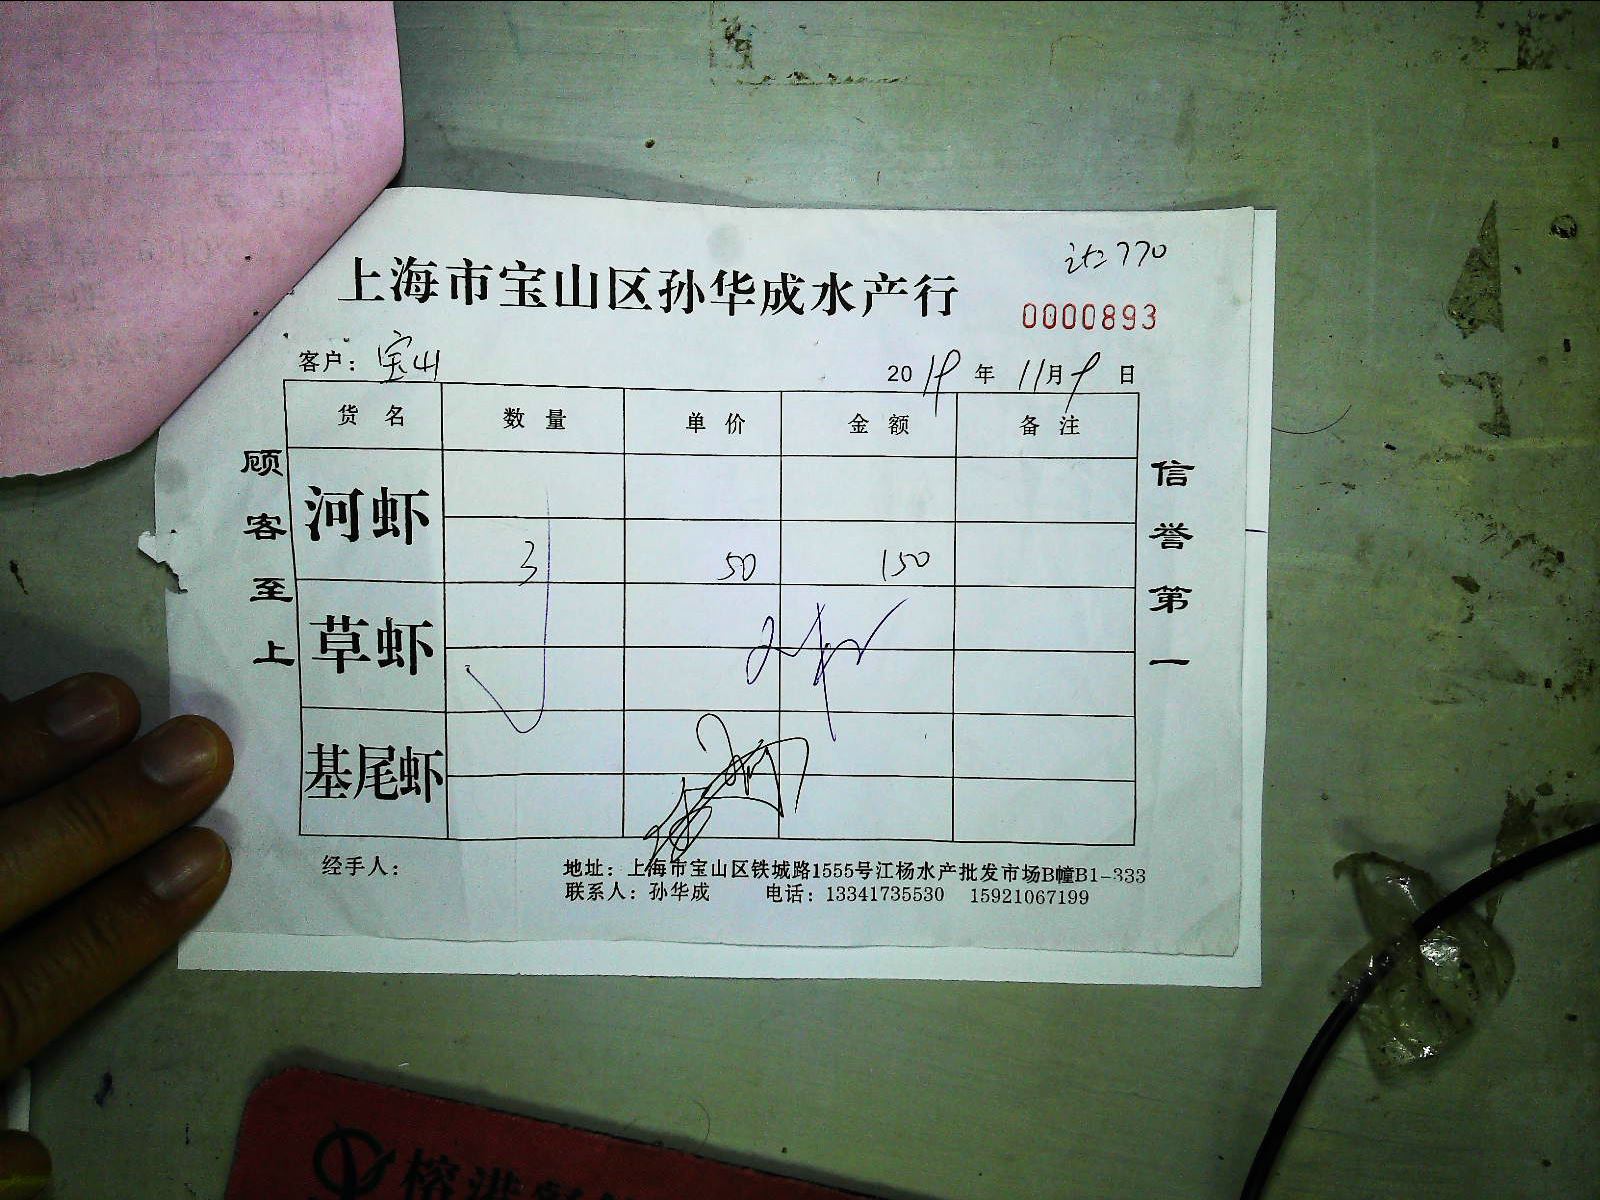 计:770
上海市宝山区孙华成水产行
0000893
客户：宝山
2019年 11月9日
货名 数量 单价 金额 备注
河虾
3 50 150
草虾
基尾虾
顾客至上
信誉第一
经手人：
地址：上海市宝山区铁城路1555号江杨水产批发市场B幢B1-333
联系人：孙华成 电话：13341735530 15921067199